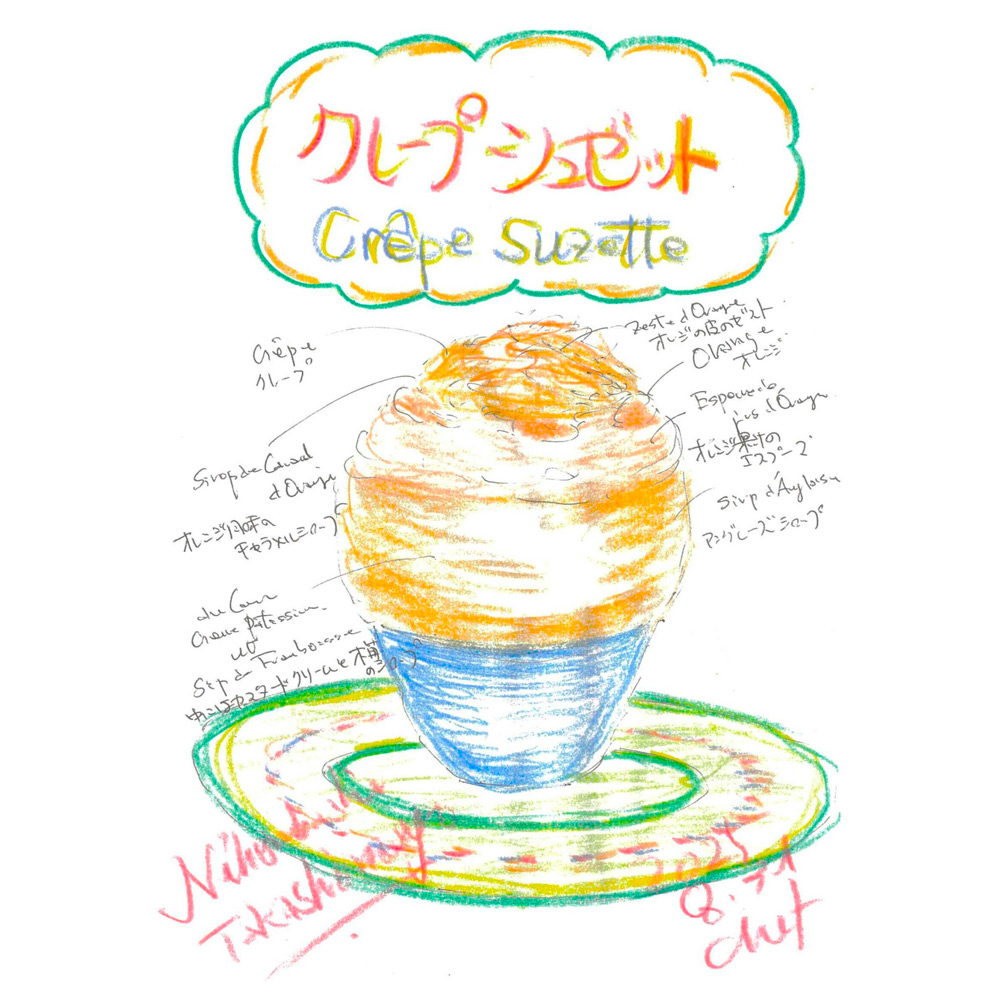 クレープシュゼット
Crêpe Suzette
Crêpe
クレープ
Sirop de
d'Orange
オレンジ風味の
キャラメルシロップ
Crème Pâtissière
et
Framboise
中にはカスタードクリームと木苺
のシロップ
Zeste d'Orange
オレンジの皮のゼスト
Orange
オレンジ
Espouma de
Jus d'Orange
オレンジ果汁の
エスプーマ
Sirop d'Anglaise
アングレーズシロップ
Nihonbashi
Takashimaya
chef